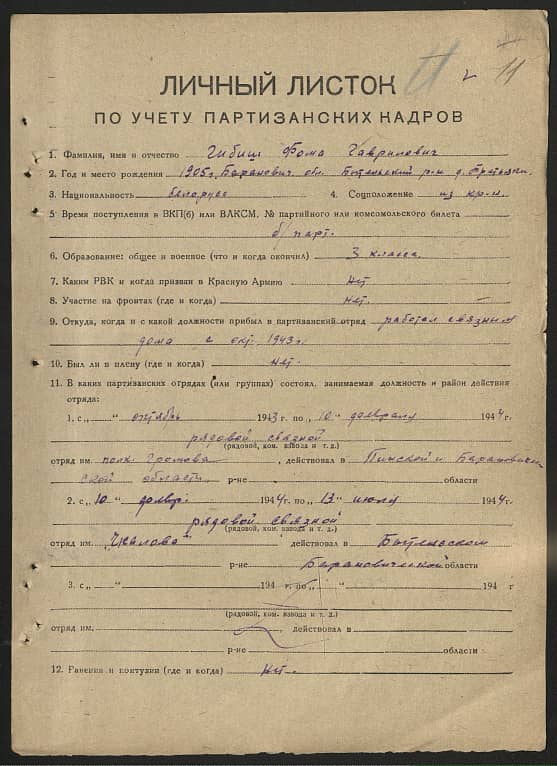 11
ЛИЧНЫЙ ЛИСТОК
ПО УЧЕТУ ПАРТИЗАНСКИХ КАДРОВ
1. Фамилия, имя и отчество Чибиш Фома Гаврилович
2. Год и место рождения 1905 г. Баранович. обл. р-н д.
3. Национальность белорус 4. Соцположение из кр-н.
5 Время поступления в ВКП(б) или ВЛКСМ, № партийного или комсомольского билета
б/парт.
6. Образование: общее и военное (что и когда окончил) 3 класса
7. Каким РВК и когда призван в Красную Армию нет
8. Участие на фронтах (где и когда) нет.
9. Откуда, когда и с какой должности прибыл в партизанский отряд работал связным
дома с окт. 1943 г.
10. Был ли в плену (где и когда) нет.
11. В каких партизанских отрядах (или группах) состоял, занимаемая должность и район действия
отряда:
1. с „ “ октябрь 1943 г. по „10“ февраля 1944 г.
рядовой связной
(рядовой, ком. взвода и т. д.)
отряд им. полк. Громова, действовал в Пинской и Барановичской
области. р-не области
2. с „10“ февр. 1944 г. по „13“ июля 1944 г.
рядовой связной
(рядовой, ком. взвода и т. д.)
отряд им. „Чкалова“ действовал в
р-не Барановической области
3. с „ “ 194 г. по „ “ 194 г
(рядовой, ком. взвода и т. д.)
отряд им. , действовал в
р-не области
12. Ранения и контузии (где и когда) нет.